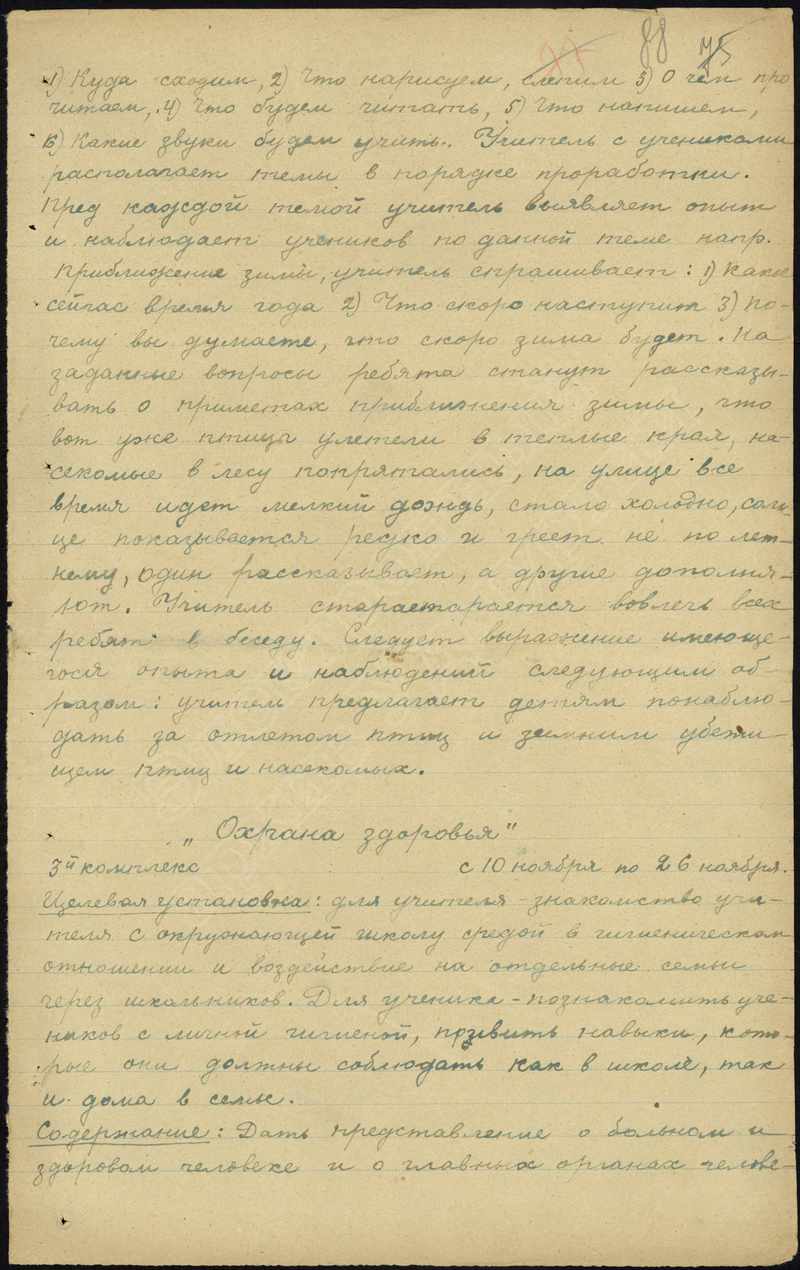 88 75
1) Куда сходим, 2) Что нарисуем, слепим 3) О чем про
читаем, 4) Что будем читать, 5) Что напишем,
6) Какие звуки будем учить. Учитель с учениками
располагает темы в порядке проработки.
Пред каждой темой учитель выявляет опыт
и наблюдает учеников по данной теме напр.
приближение зимы, учитель спрашивает: 1) Какое
сейчас время года 2) Что скоро наступит 3) По-
чему вы думаете, что скоро зима будет. На
заданные вопросы ребята станут рассказы-
вать о приметах приближения зимы, что
вот уже птицы улетели в теплые края, на-
секомые в лесу попрятались, на улице все
время идет мелкий дождь, стало холодно, солн-
це показывается редко и греет не по лет-
нему, один рассказывает, а другие дополня-
ют. Учитель стараетарается вовлечь всех
ребят в беседу. Следует выражение имеюще-
гося опыта и наблюдений следующим об-
разом: учитель предлагает детям понаблю-
дать за отлетом птиц и зимним убежи-
щем птиц и насекомых.
„Охрана здоровья"
3й комплекс с 10 ноября по 26 ноября.
Целевая установка: для учителя - знакомство учи-
теля с окружающей школу средой в гигиеническом
отношении и воздействие на отдельные семьи
через школьников. Для ученика - познакомить уче-
ников с личной гигиеной, привить навыки, кото-
рые они должны соблюдать как в школе, так
и дома в семье.
Содержание: Дать представление о больном и
здоровом человеке и о главных органах челове-